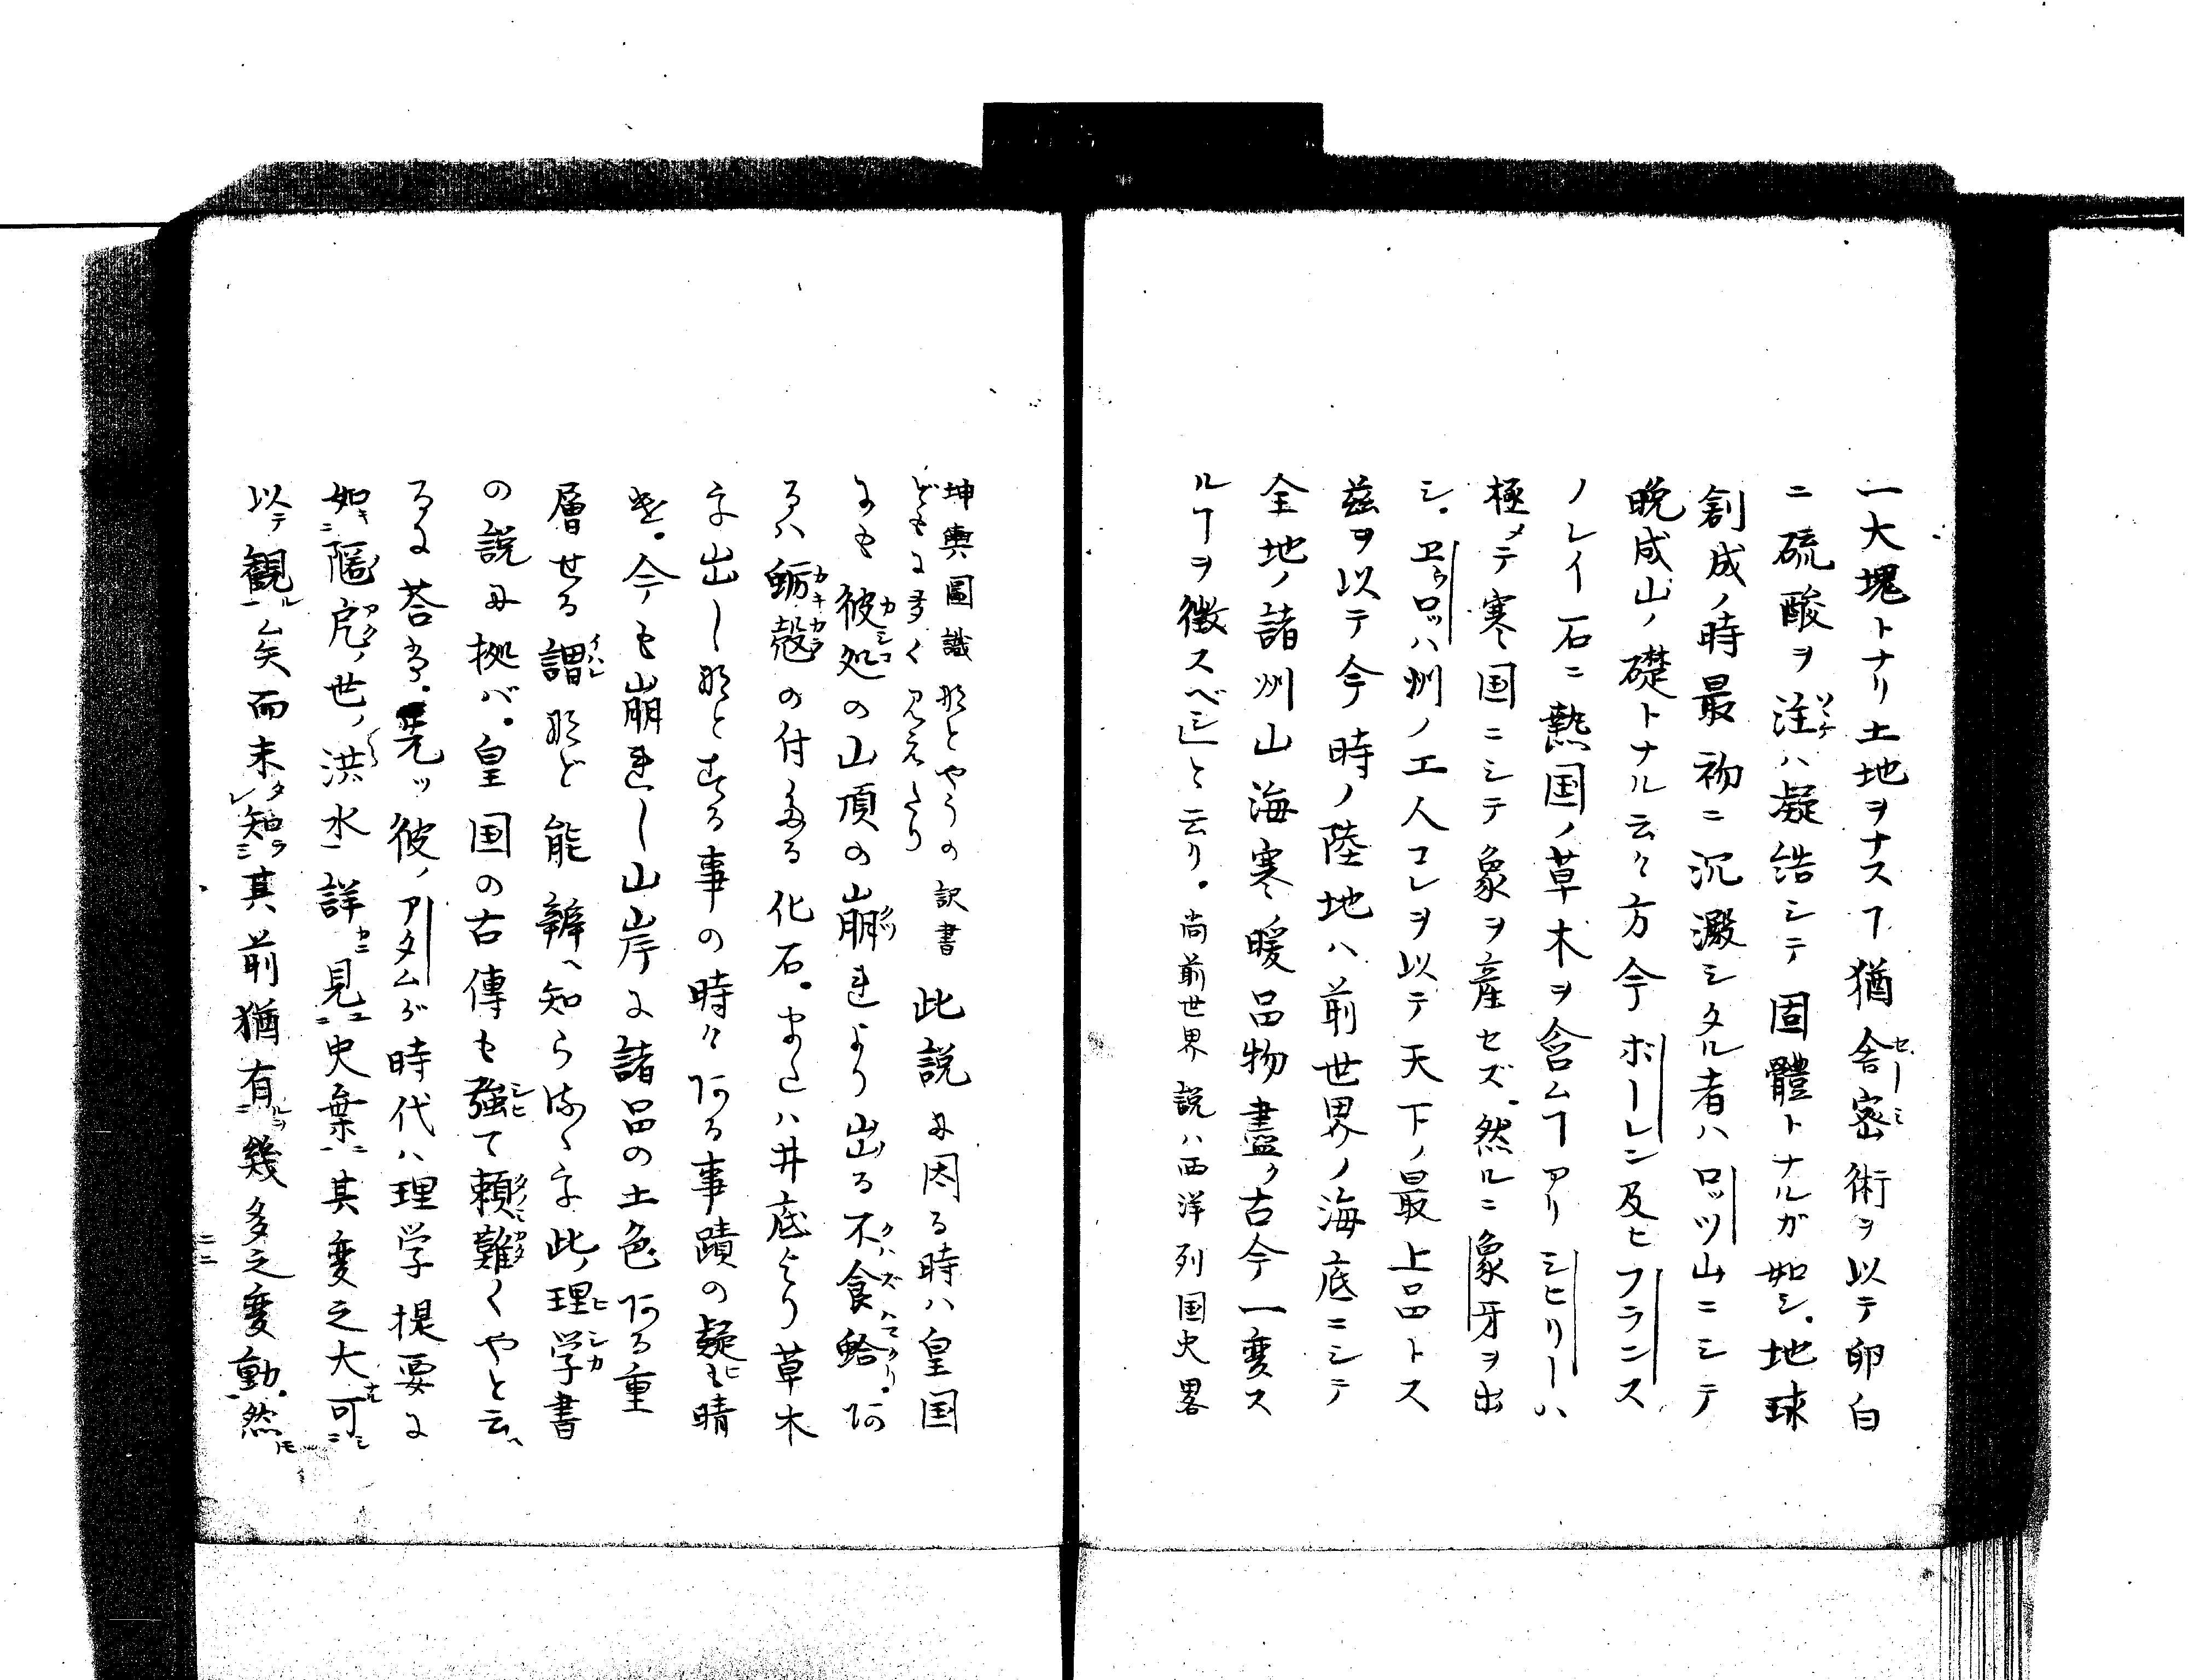 一大塊トナリ土地ヲナスヿ猶舎密術ヲ以テ卵白
ニ硫酸ヲ注ハ凝結シテ固體トナルガ如シ。地球
創成ノ時最初ニ沉澱シタル者ハロッツ山ニシテ
晩成山ノ礎トナル云々方今ボーレン及ヒフランス
ノレイ石ニ熱国ノ草木ヲ含ムヿアリシヒリーハ
極メテ寒国ニシテ象ヲ産セズ。然ルニ象牙ヲ出
シ。ヱウロッハ州ノ工人コレヲ以テ天下ノ最上品トス
茲ヲ以テ今時ノ陸地ハ前世界ノ海底ニシテ
全地ノ諸州山海寒暖品物盡ク古今一変ス
ルヿヲ徴スベシと云り。尚前世界説ハ西洋列国史畧
坤輿圖識なとやうの訳書
どもに多く見えたり
此説に因る時ハ皇国
にも彼処の山頂の崩れより出る不食蛤。阿
るハ蛎殻の付たる化石。またハ井底より草木
を出しなとする事の時々阿る事蹟の疑も晴
ぬ。今も山崩れし山岸に諸品の土色阿る重
層せる謂など能辨へ知らるゝを此ノ理学書
の説に拠バ。皇国の古傳も強て頼難くやと云へ
るに荅ふ。先ッ彼ノアタムガ時代ハ理学提要に
如キニ隔戹ノ世ノ洪水一詳カニ見ユニ史策ニ其変之大可シニ
以テ観ル一矣而未タレ知ラミ其前猶有ルヿヲニ幾多之変動。然